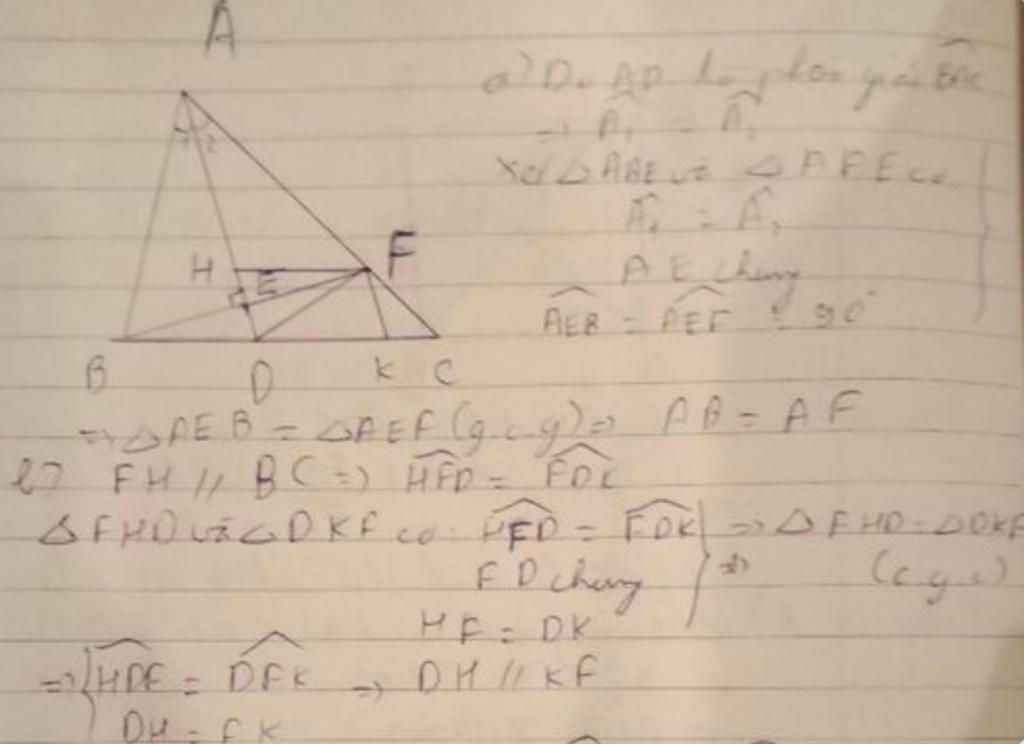 A
1 2
H E F
B D K C
a) Do AD là phân giác BAC
=> Â₁ = Â₂
Xét △ABE và △AFE có
Â₁ = Â₂
AE chung
AEB = AEF = 90°
=> △AEB = △AEF (g.c.g) => AB = AF
b) FH // BC => HFD = FDK
△FHD và △DKF có HFD = FDK => △FHD = △DKF
FD chung => (c.g.c)
HF = DK
=> HDF = DFK => DH // KF
DH = FK